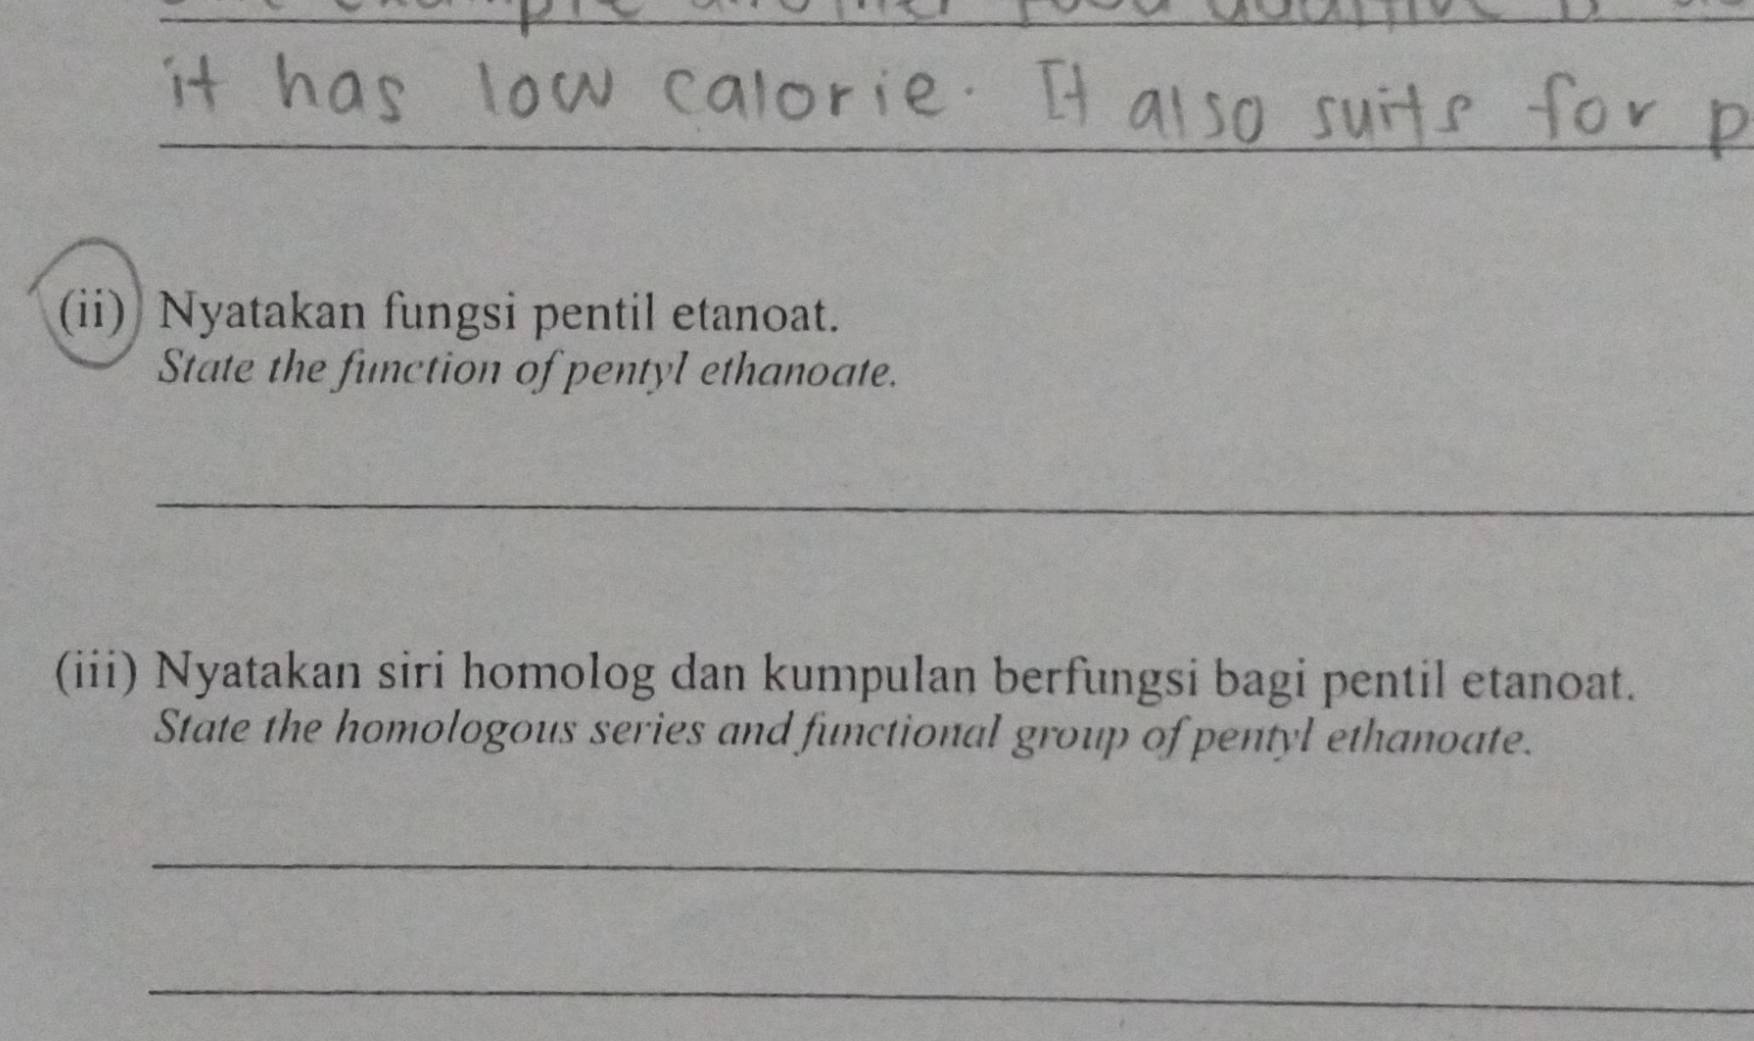 example another food additive is
it has low calorie. It also suits for p
(ii) Nyatakan fungsi pentil etanoat.
State the function of pentyl ethanoate.
(iii) Nyatakan siri homolog dan kumpulan berfungsi bagi pentil etanoat.
State the homologous series and functional group of pentyl ethanoate.